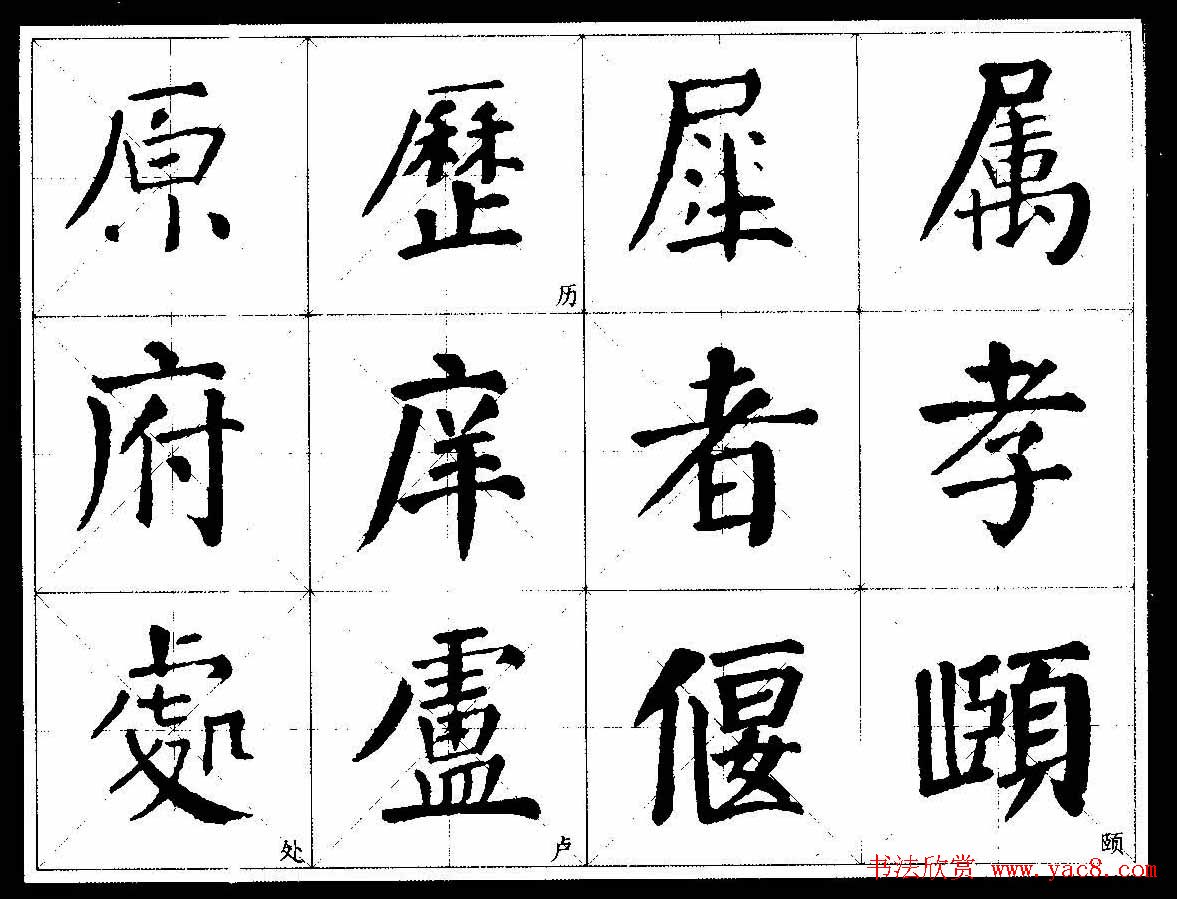 原 歷 犀 属
历
府 庠 者 孝
處 盧 偃 頤
处 卢 颐
书法欣赏 www.yac8.com